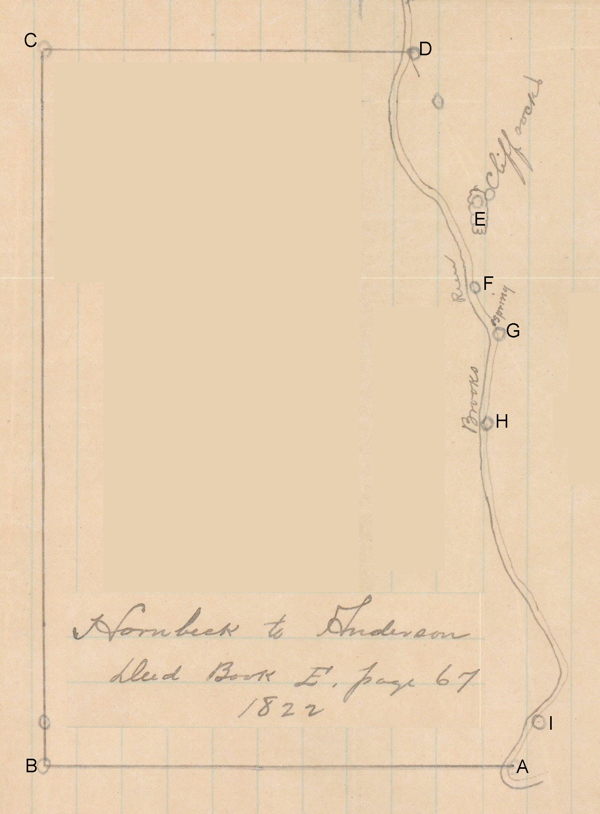 C
D
Cliff rocks
E
F
Run
Spring
G
Brooks
H
Hornbeck to Anderson
Deed Book E. page 67
1822
I
B
A